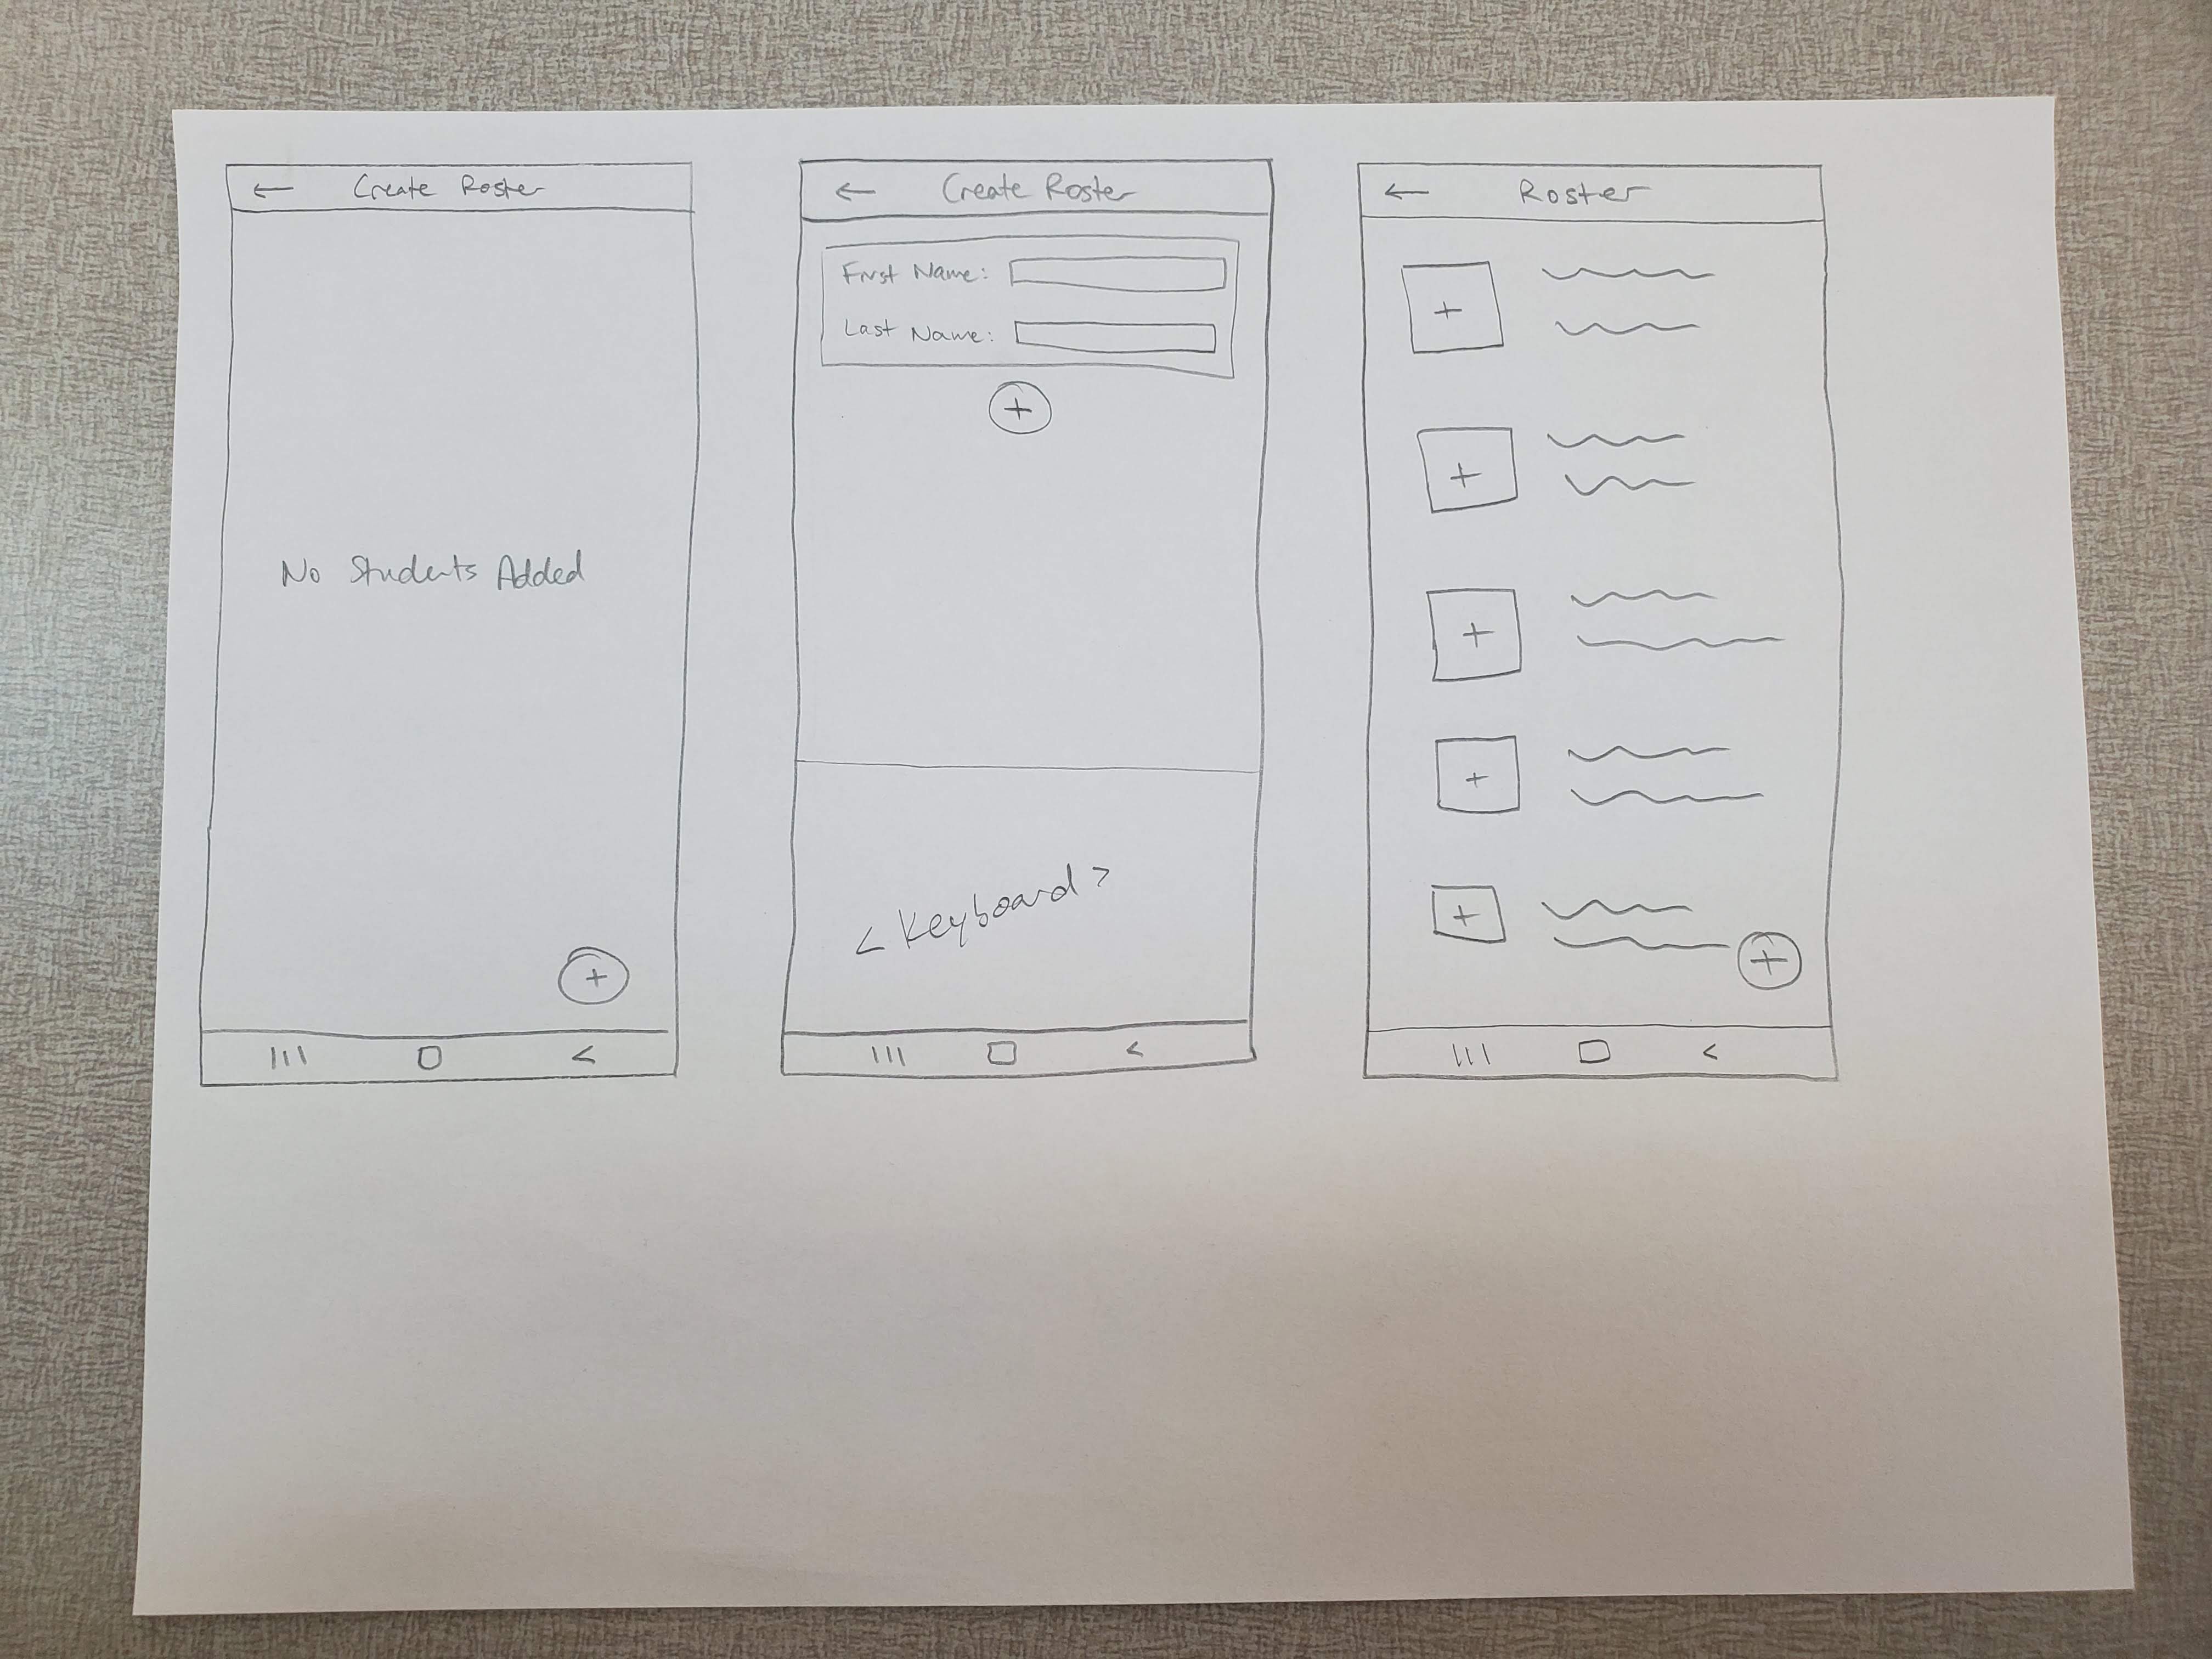 Create Roster
No Students Added
Create Roster
First Name:
Last Name:
< Keyboard >
Roster